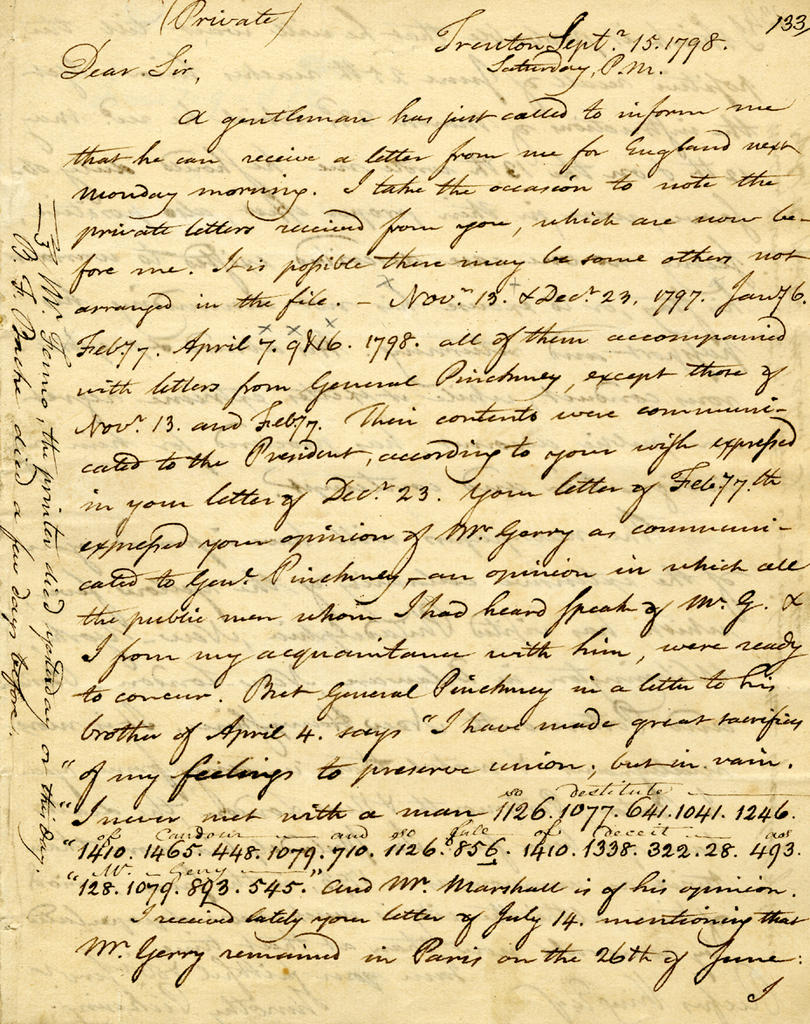 (Private)
133
Trenton Septr. 15. 1798.
Saturday, P.M.
Dear Sir,
A gentleman has just called to inform me
that he can receive a letter from me for England next
monday morning. I take the occasion to note the
private letters received from you, which are now be-
fore me. It is possible there may be some others not
arranged in the file. — Novr. 13. & Decr. 23, 1797. Jany 6.
Feby 7. April 7. 9 & 16. 1798. all of them accompanied
with letters from General Pinckney, except those of
Novr. 13. and Feby 7. Their contents were communi-
cated to the President, according to your wish expressed
in your letter of Decr. 23. Your letter of Feby 7.th
expressed your opinion of Mr. Gerry as communi-
cated to Genl. Pinckney,—an opinion in which all
the public men whom I had heard speak of Mr. G. &
I from my acquaintance with him, were ready
to concur. But General Pinckney in a letter to his
brother of April 4. says "I have made great sacrifices
"of my feelings to preserve union; but in vain.
so destitute
"I never met with a man 1126. 1077. 641. 1041. 1246.
of Candour and so full of deceit as
"1410. 1465. 448. 1079. 710. 1126. 856. 1410. 1338. 322. 28. 493.
Mr. Gerry
"128. 1079. 893. 545." And Mr. Marshall is of his opinion.
I received lately your letter of July 14. mentioning that
Mr. Gerry remained in Paris on the 26th of June:
I
Mr. Fenno, the printer died yesterday or this day.
B. F. Bache died a few days before.